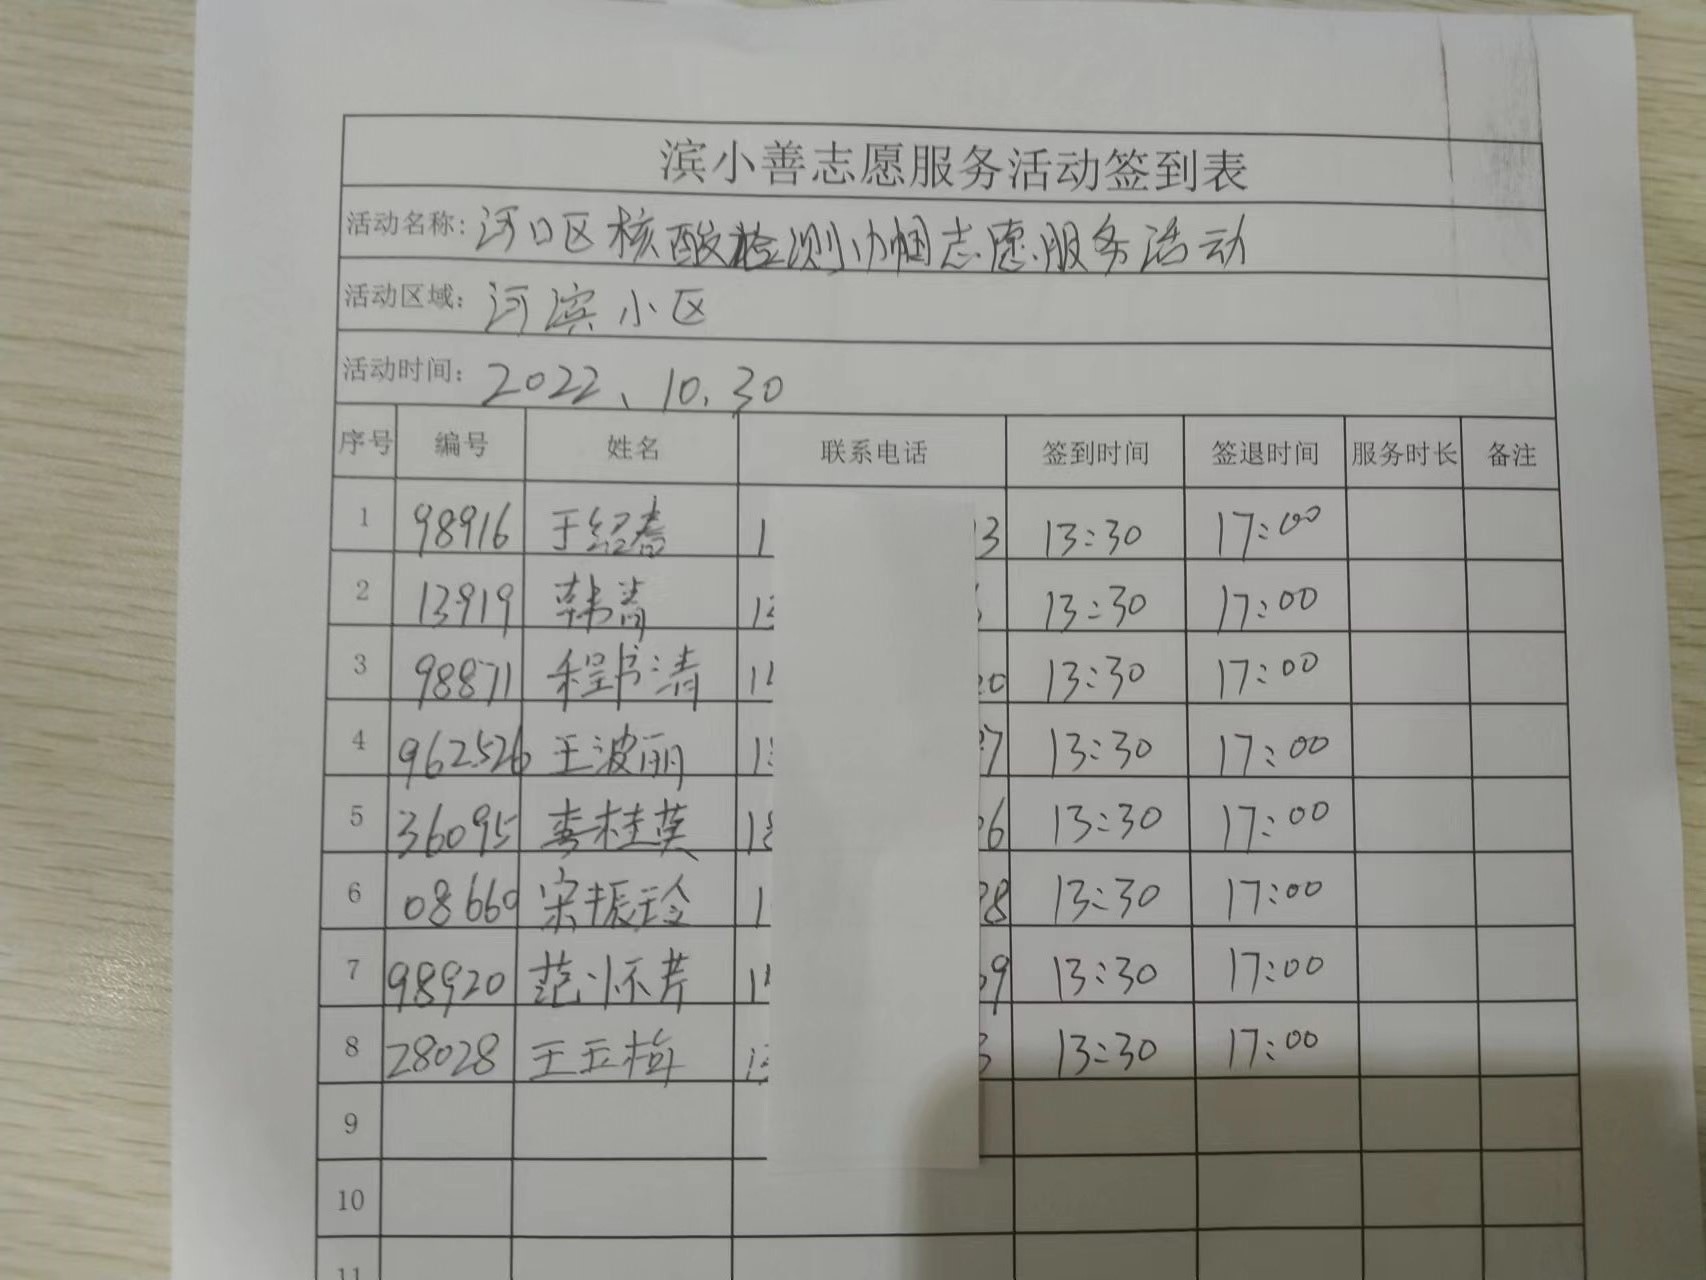 滨小善志愿服务活动签到表
活动名称: 河口区核酸检测巾帼志愿服务活动
活动区域: 河滨小区
活动时间: 2022、10.30
序号 编号 姓名 联系电话 签到时间 签退时间 服务时长 备注
1 98916 于绍春 1 3 13:30 17:00
2 13919 韩青 13:30 17:00
3 98871 程书清 1 20 13:30 17:00
4 962526 王波丽 1 7 13:30 17:00
5 36095 李桂英 1 6 13:30 17:00
6 08660 宋振玲 1 8 13:30 17:00
7 98920 范怀芹 1 9 13:30 17:00
8 28028 王玉梅 1 3 13:30 17:00
9
10
11